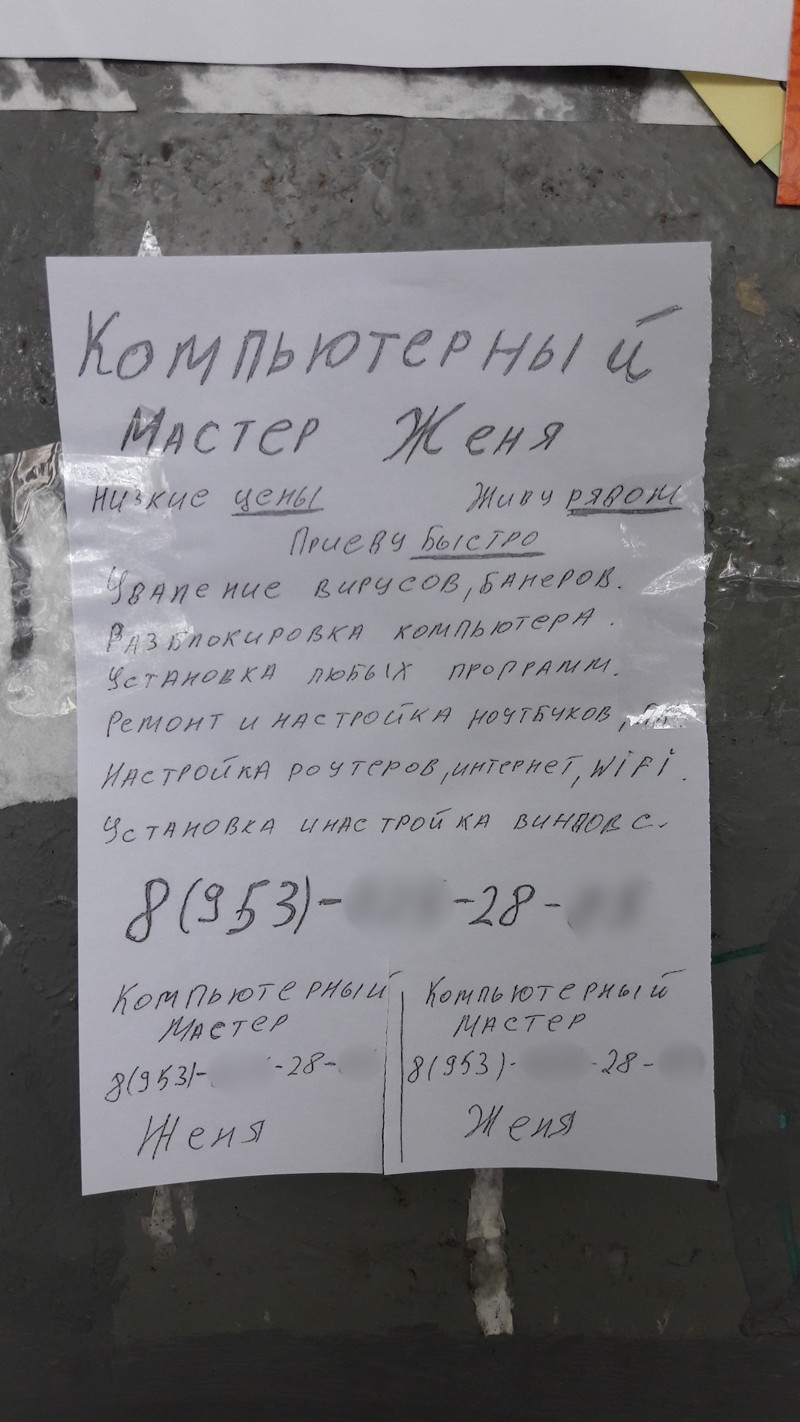 Компьютерный
Мастер Женя
Низкие цены Живу рядом
Приеду Быстро
Удаление вирусов, банеров.
Разблокировка компьютера.
Установка любых программ.
Ремонт и настройка ноутбуков, ПК.
Настройка роутеров, интернет, WiFi.
Установка и настройка виндовс.
8(953)- -28-
Компьютерный
Мастер
8(953)- -28-
Женя
Компьютерный
Мастер
8(953)- -28-
Женя